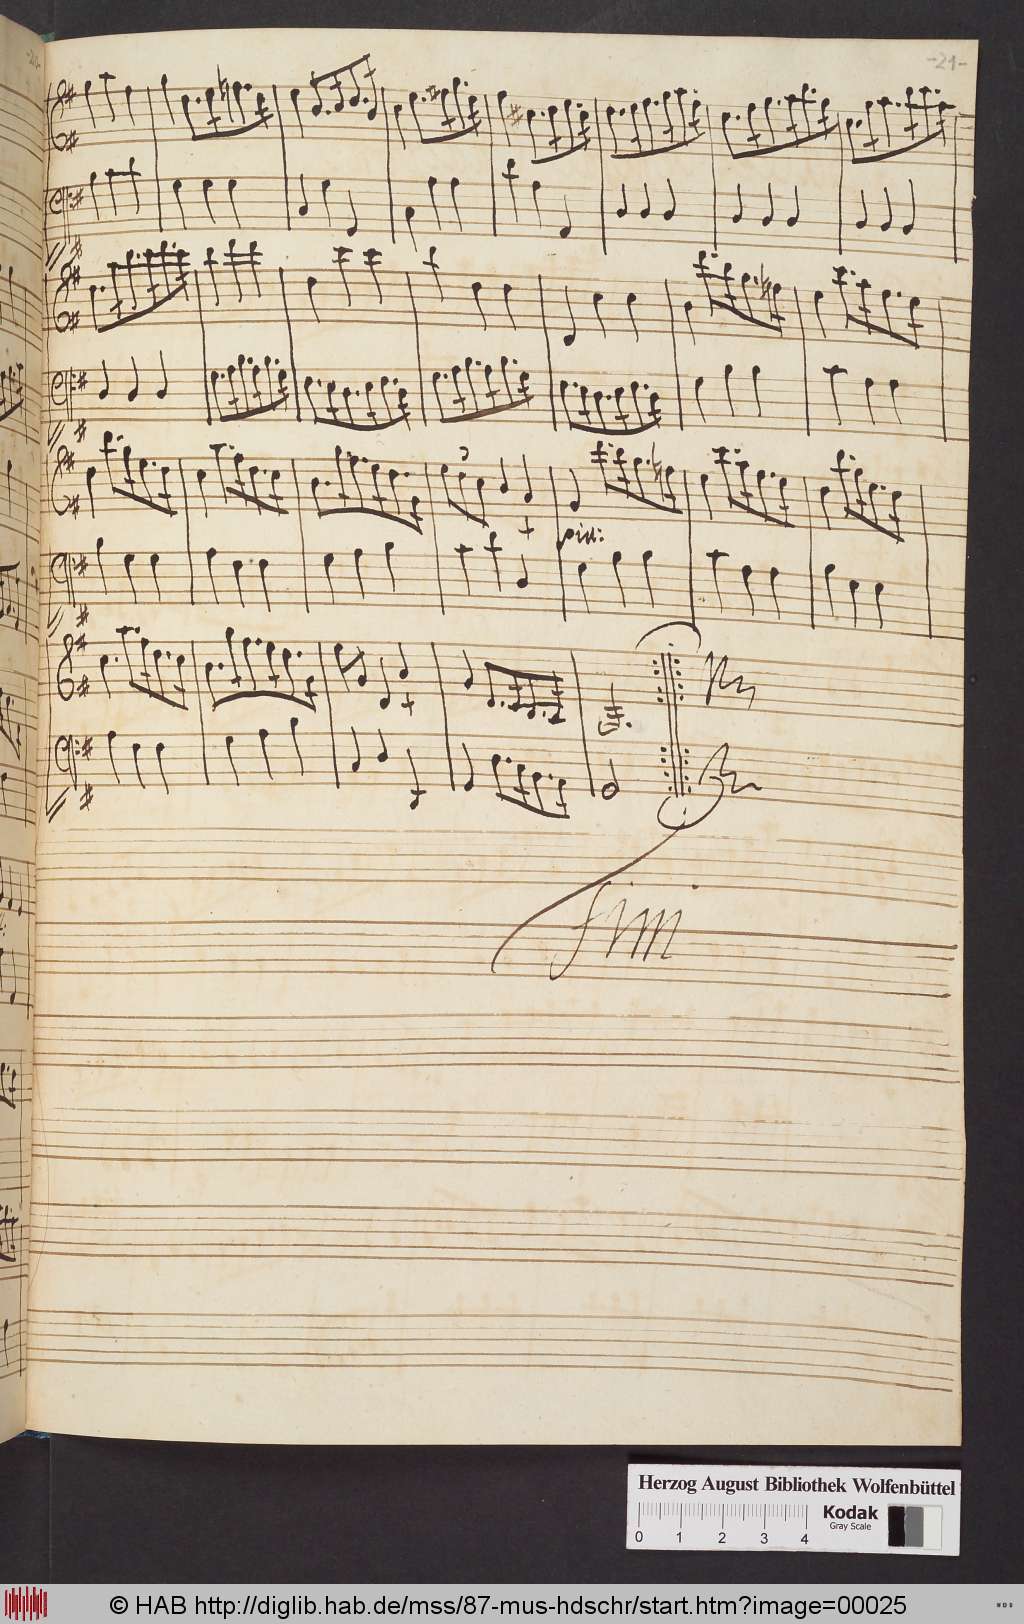 -21-
3
pia:
Fini
Herzog August Bibliothek Wolfenbüttel
Kodak
Gray Scale
0 1 2 3 4
© HAB http://diglib.hab.de/mss/87-mus-hdschr/start.htm?image=00025